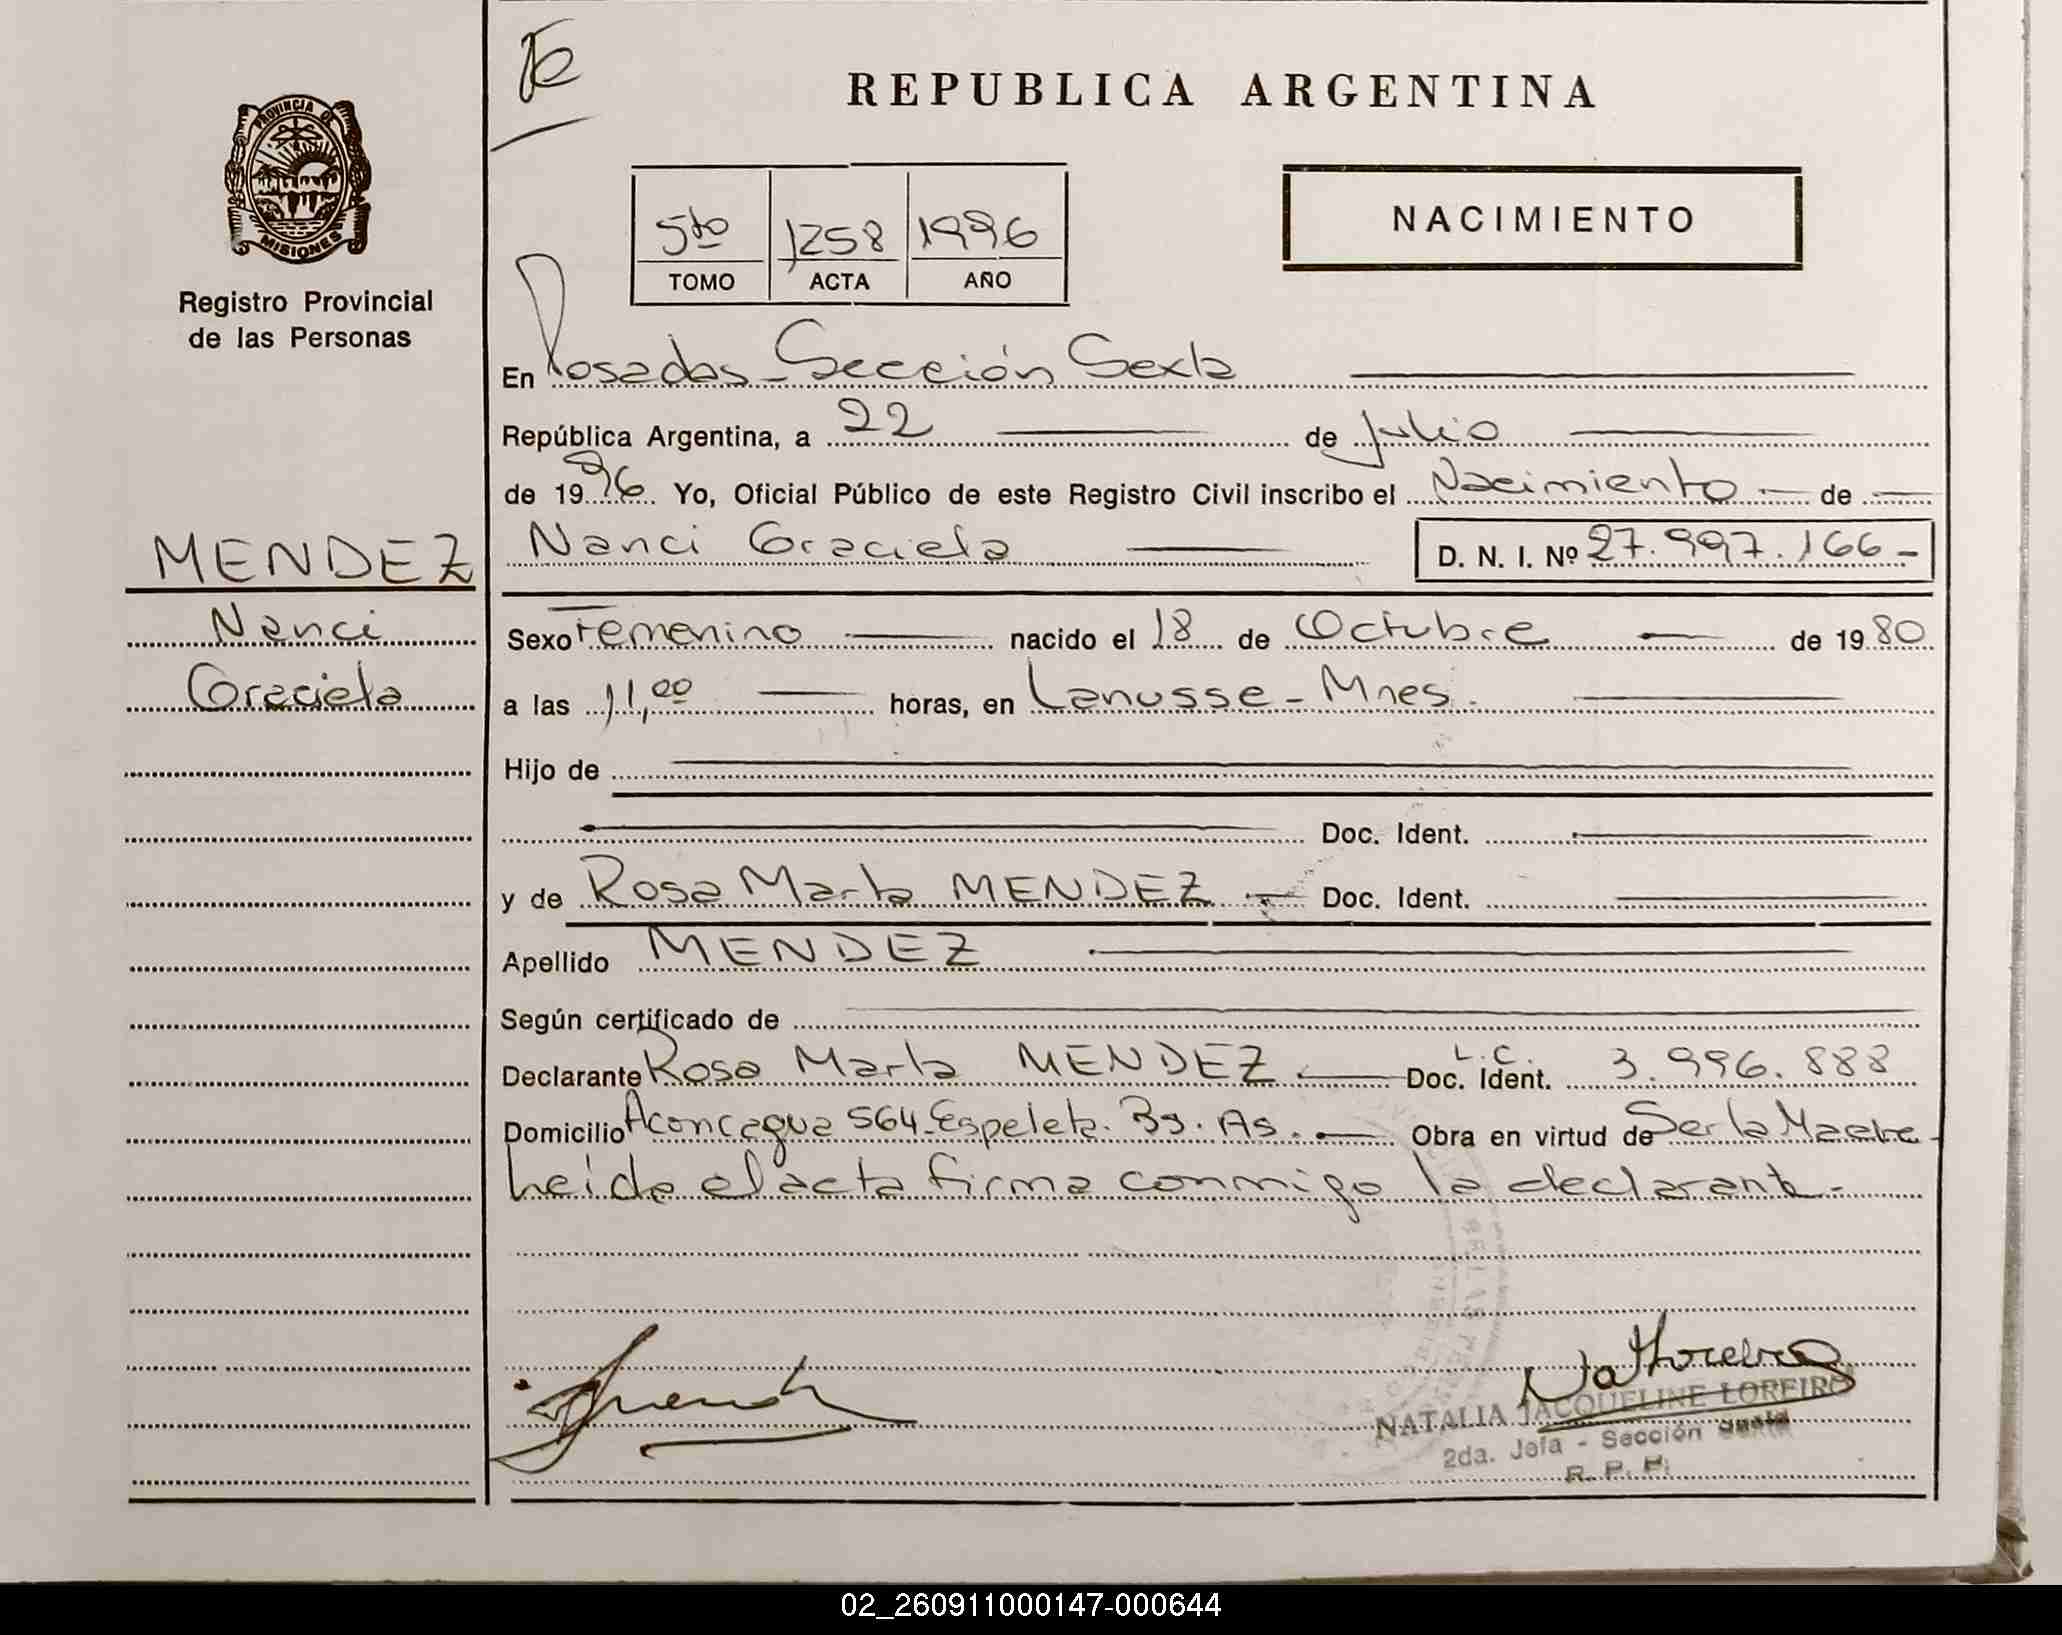 REPUBLICA ARGENTINA
PROVINCIA DE
MISIONES
Registro Provincial
de las Personas
5to 1258 1996
TOMO ACTA AÑO
NACIMIENTO
En Posadas - Sección Sexta
República Argentina, a 22 de Julio
de 1996 Yo, Oficial Público de este Registro Civil inscribo el Nacimiento de
MENDEZ
Nanci Graciela D. N. I. Nº 27.997.166-
Nanci
Graciela
Sexo Femenino nacido el 18 de Octubre de 1980
a las 11,00 horas, en Lanusse - Mnes.
Hijo de
Doc. Ident.
y de Rosa Marta MENDEZ Doc. Ident.
Apellido MENDEZ
Según certificado de
Declarante Rosa Marta MENDEZ Doc. Ident. L.C. 3.996.888
Domicilio Aconcagua 564 - Espeleta. Bs. As. Obra en virtud de Ser la Madre
Leida el acta firma conmigo la declarante.
NATALIA JACQUELINE LOREIRO
2da. Jefa - Sección Sexta
R. P. P.
02_260911000147-000644